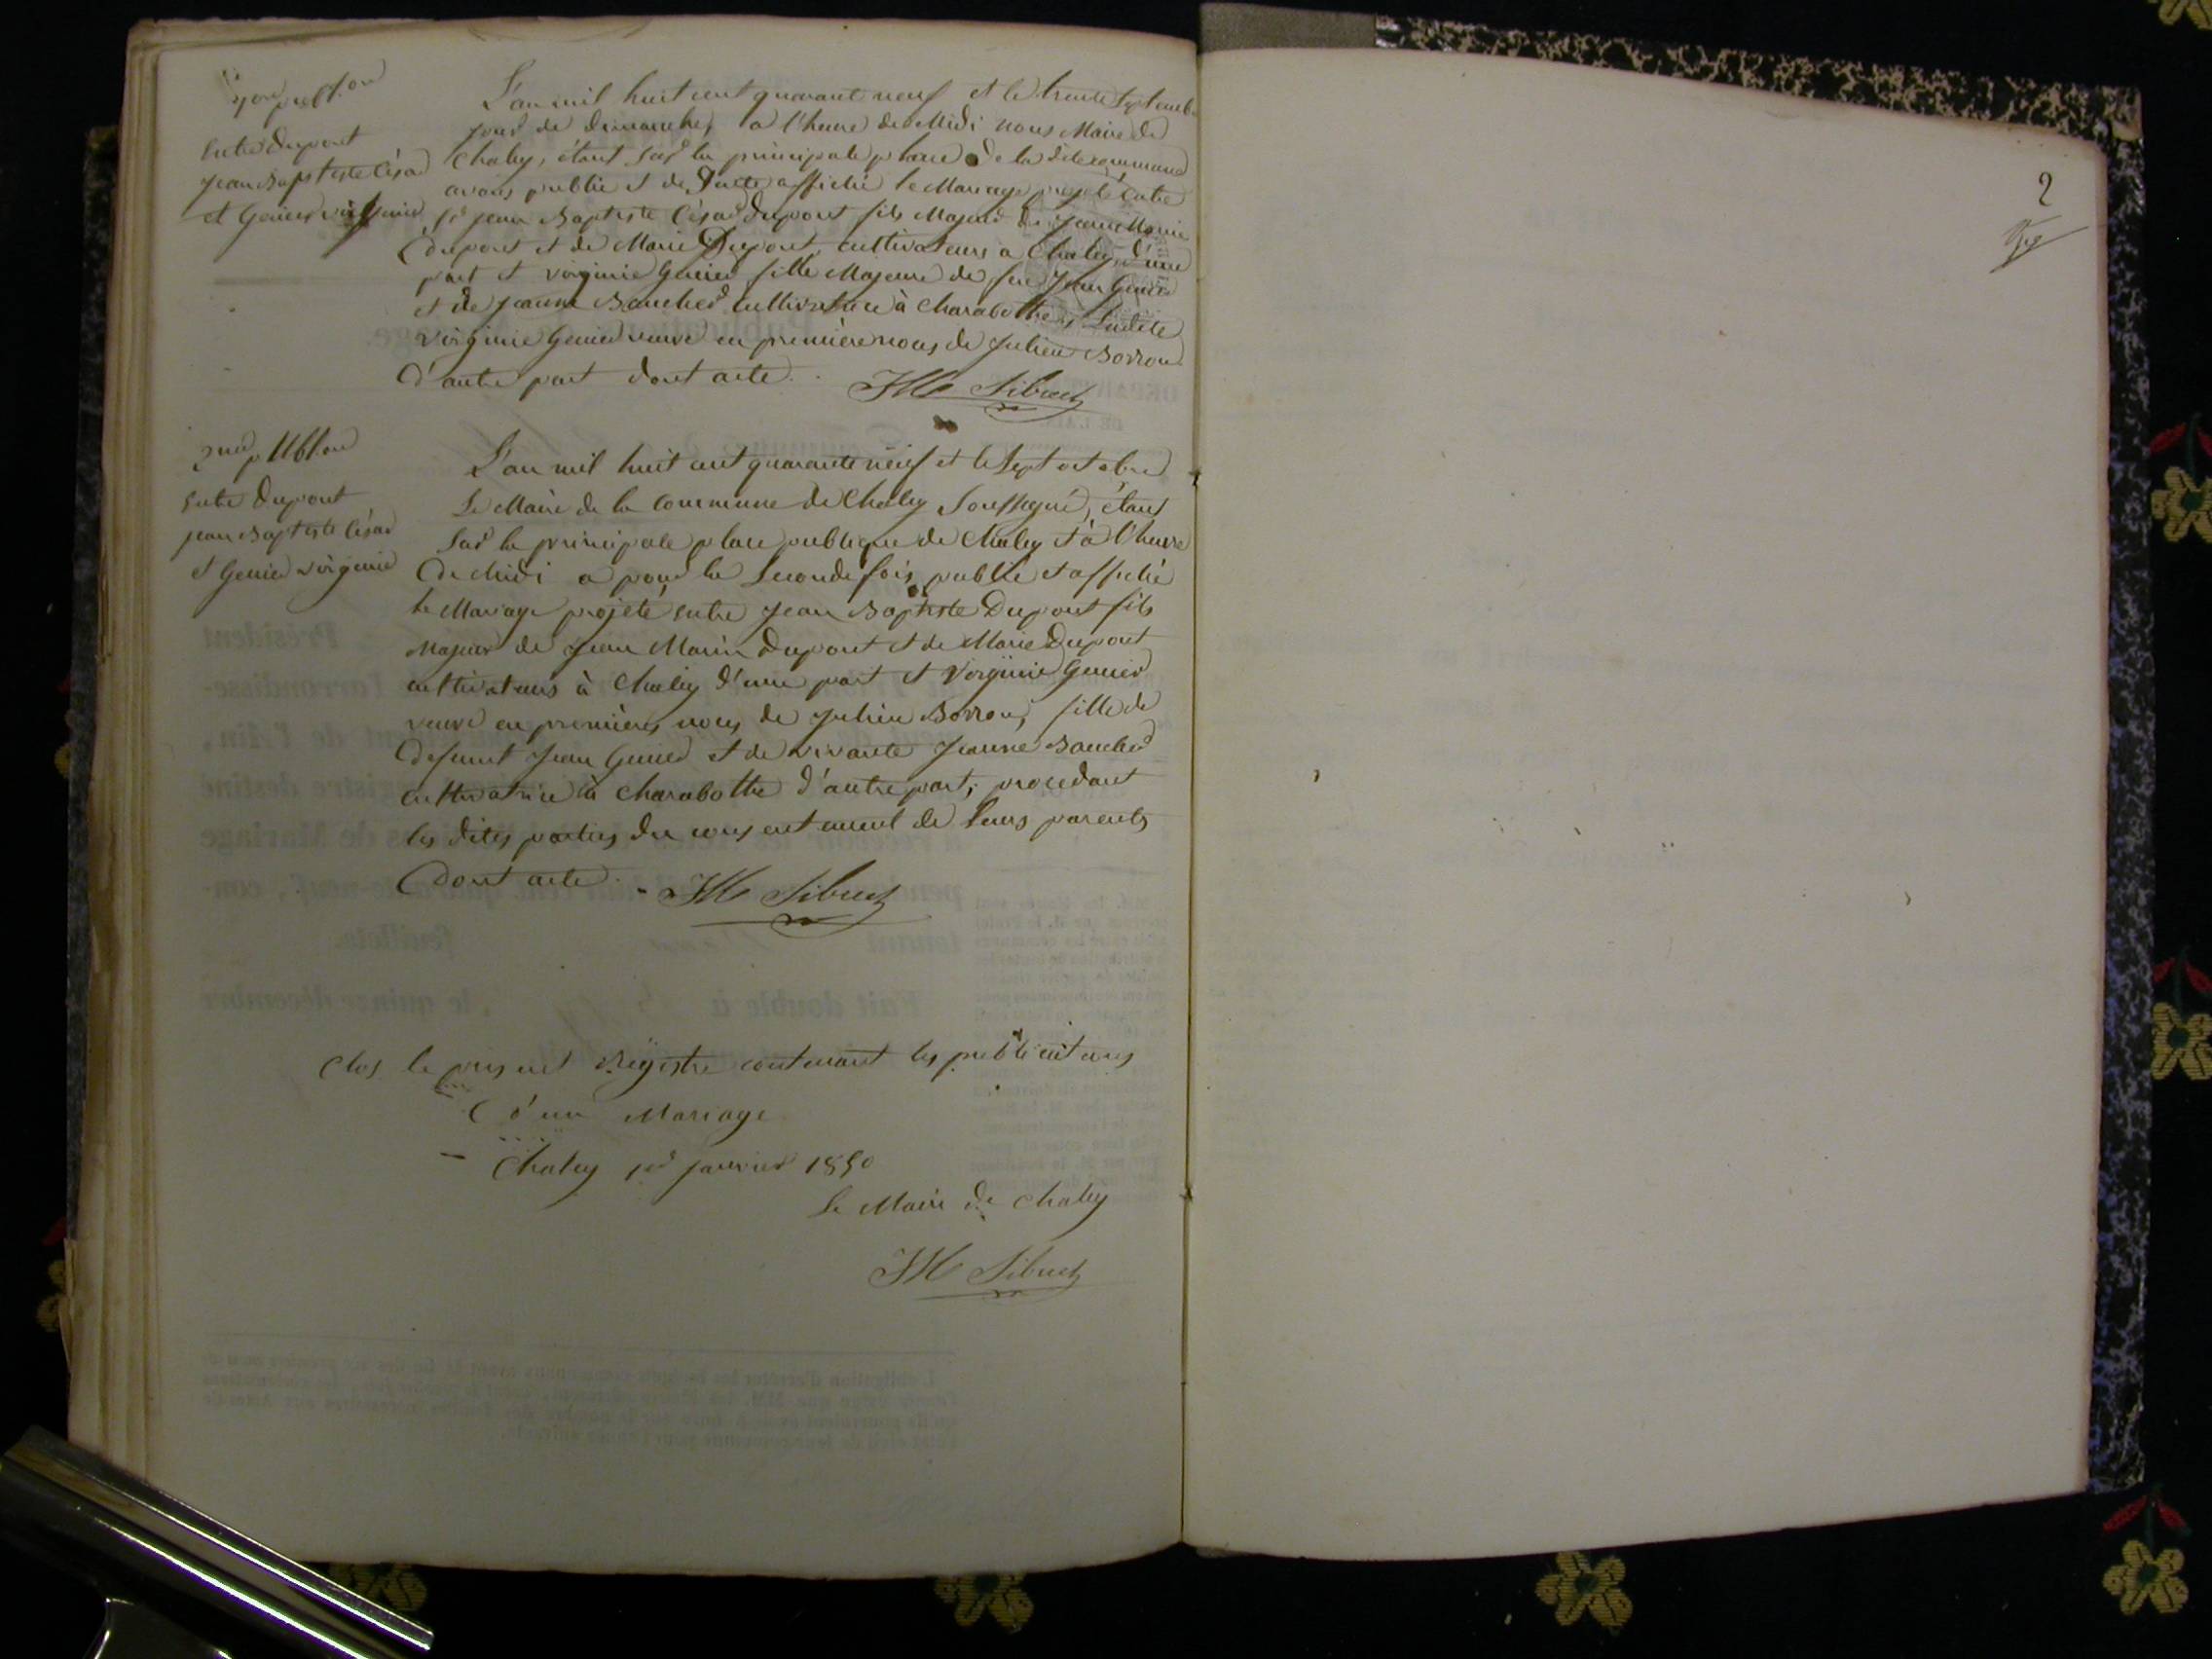 entre Dupont
Jean Baptiste César
et Genier virginie
L'an mil huit cent quarant neuf et le trente Septemb
jour de dimanche, à l'heure de Midi nous Maire de
Chaley, étant sur la principale place de la dite commune
avons publié et de suite affiché le Mariage projeté entre
Sr jean Baptiste César dupont fils Majeur de Jean Marie
dupont et de Marie Dupont, cultivateurs à Chaley d'une
part et virginie Genier fille Majeure de feu Jean Genier
et de jeanne Boucher cultivatrice à Charabotte, Ladite
virginie Genier veuve en première noces de Julien Borron
d'autre part dont acte.
JM Sibuet
2me publion
entre Dupont
jean Baptiste César
et Genier virginie
L'an mil huit cent quarante neuf et le sept octobre
Le Maire de la commune de Chaley Soussigné, étant
Sur la principale place publique de Chaley et à l'heure
de Midi a pour la Seconde fois publié et affiché
le Mariage projeté entre Jean Baptiste Dupont fils
Majeur de Jean Marie Dupont et de Marie Dupont
cultivateurs à Chaley d'une part et Virginie Genier
veuve en premières noces de Julien Borron, fille de
defunt Jean Genier et de vivante Jeanne Boucher
cultivatrice à Charabotte d'autre part, procedant
les dites parties du consentement de leurs parents
Dont acte. JM Sibuet
Clos le present Régistre contenant les publications
d'un Mariage
Chaley 1er janvier 1850
Le Maire de Chaley
JM Sibuet
2